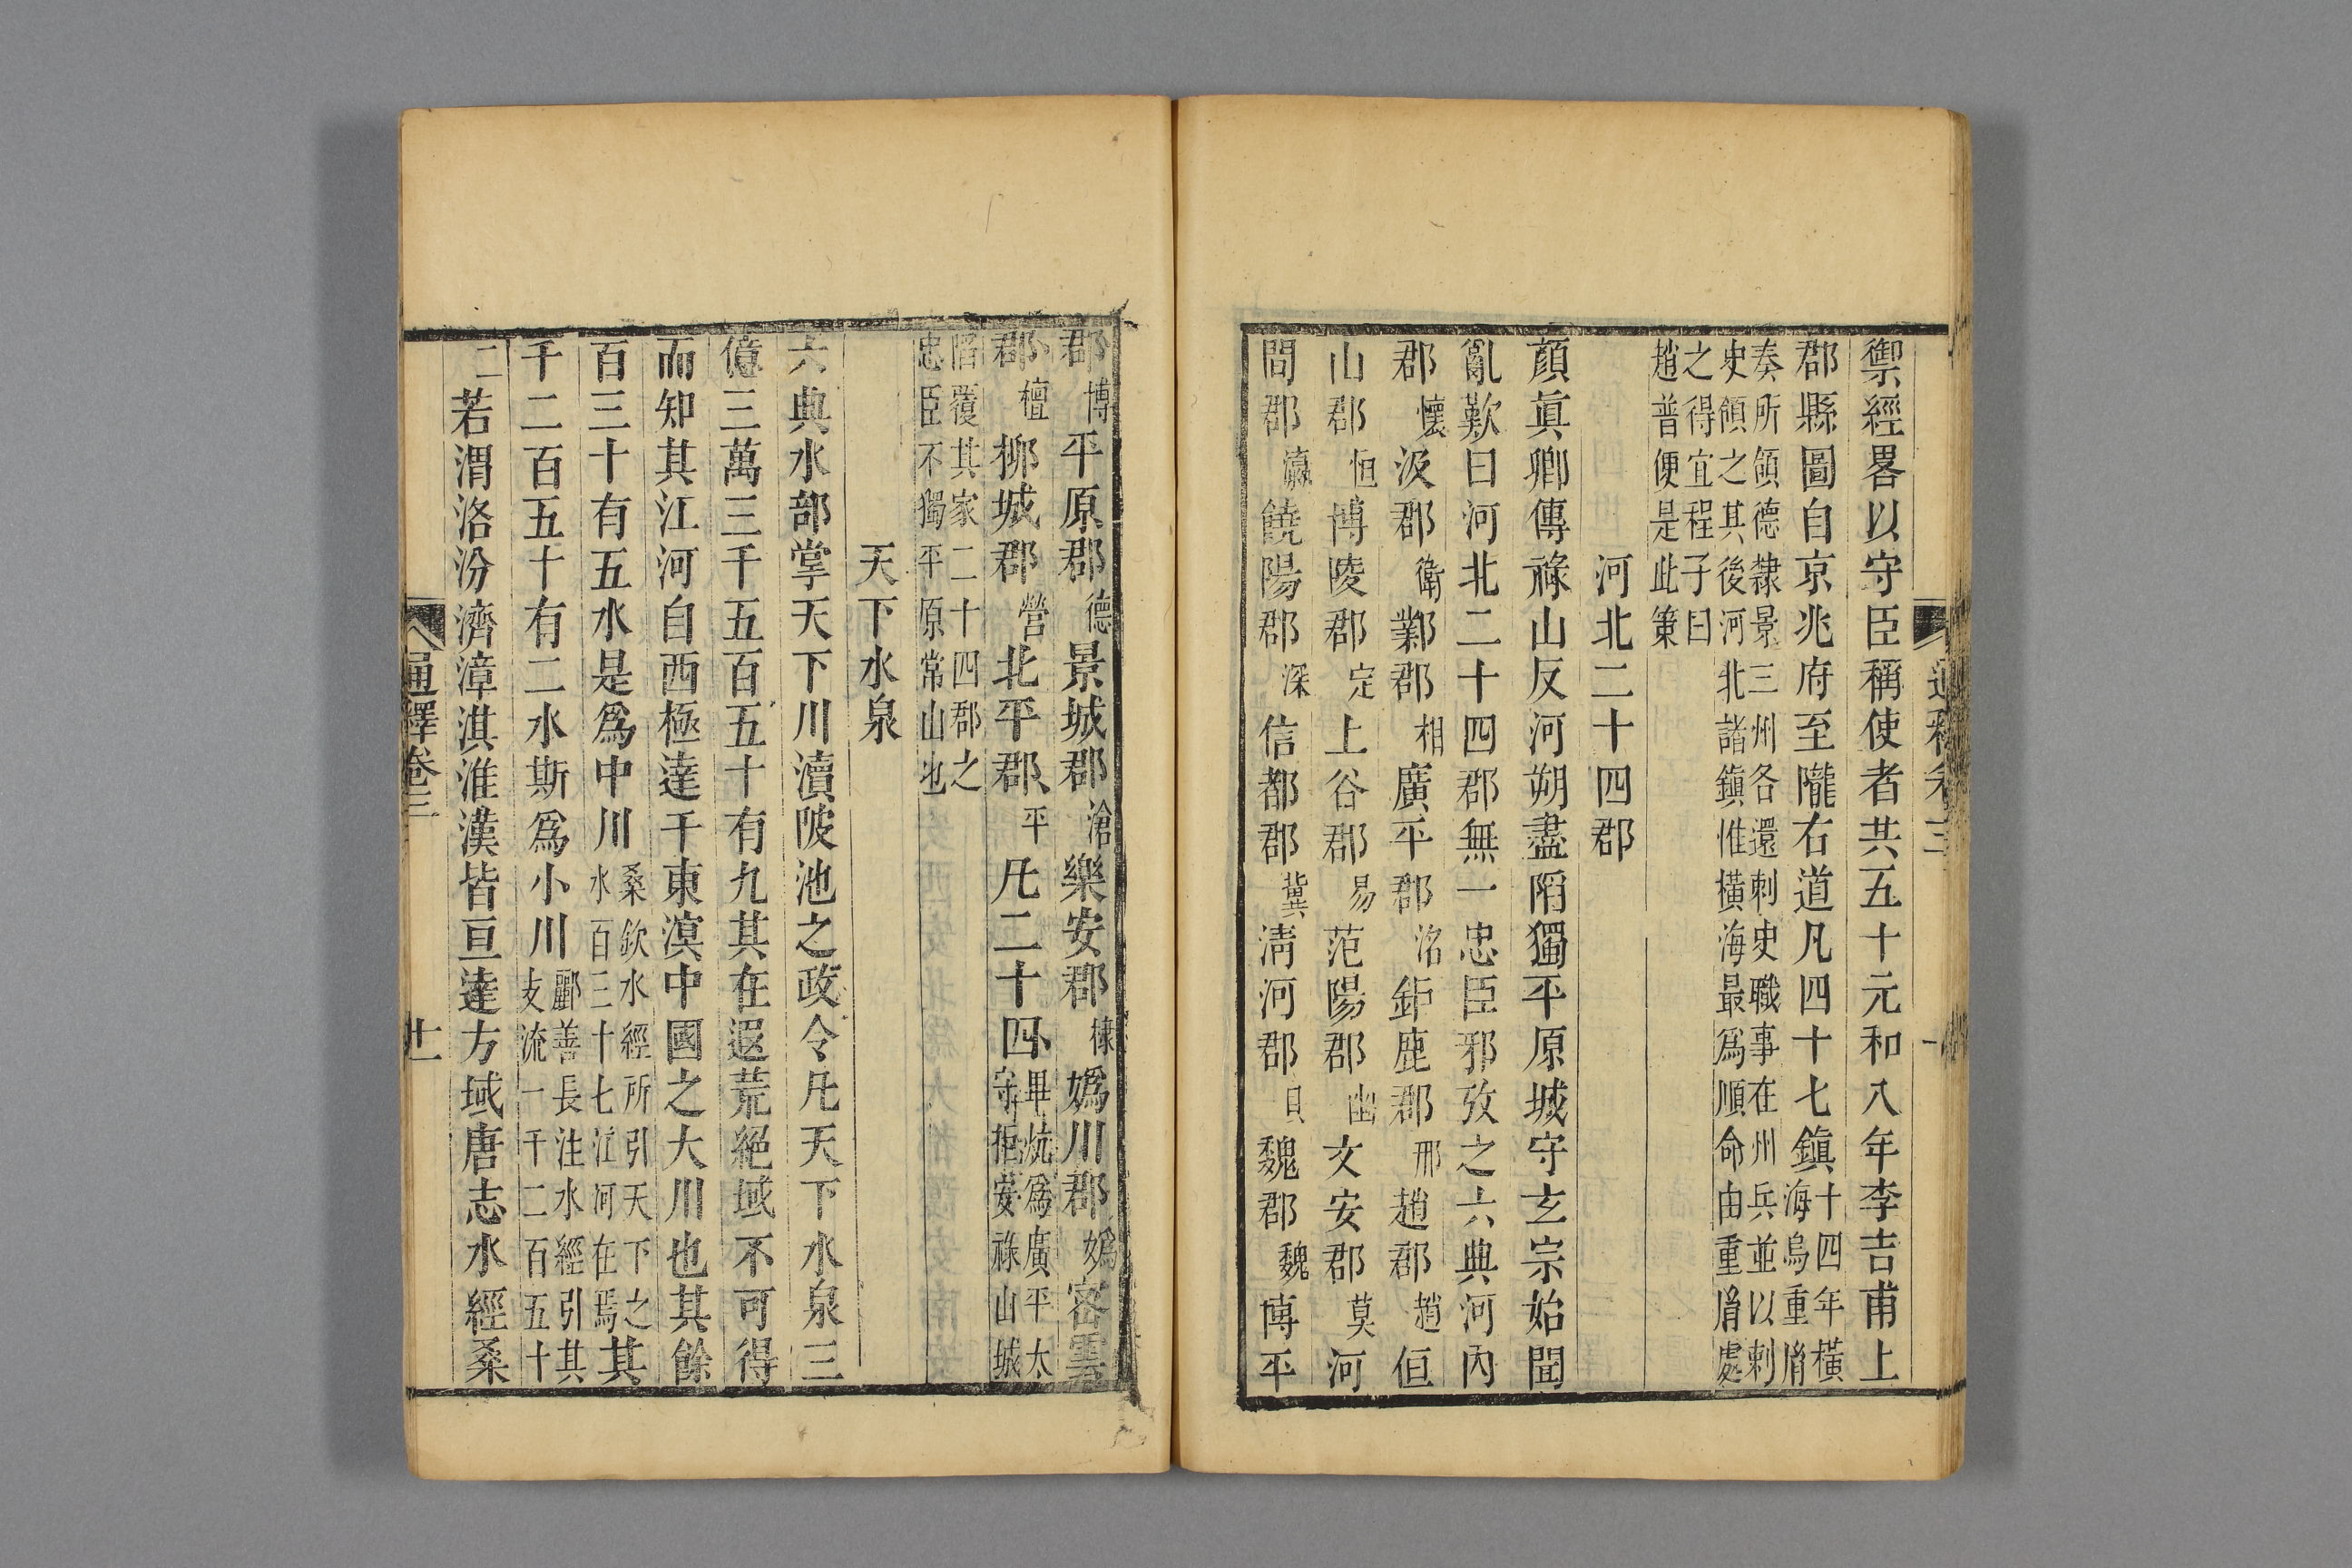 禦經畧以守臣稱使者共五十元和八年李吉甫上
郡縣圖自京兆府至隴右道凡四十七鎭十四年橫海烏重胤
奏所領德隸景三州各還刺史職事在州兵並以刺
史領之其後河北諸鎭惟橫海最爲順命由重胤處
之得宜程子曰
趙普便是此策
河北二十四郡
顏眞卿傳祿山反河朔盡陷獨平原城守玄宗始聞
亂歎曰河北二十四郡無一忠臣邪攷之六典河內
郡懷汲郡衛鄴郡相廣平郡洺鉅鹿郡邢趙郡趙恒
山郡恒博陵郡定上谷郡易范陽郡幽文安郡莫河
間郡瀛饒陽郡深信都郡冀淸河郡貝魏郡魏博平
郡博平原郡德景城郡滄樂安郡棣嬀川郡嬀密雲
郡檀柳城郡營北平郡平凡二十四畢炕爲廣平太守拒安祿山城
陷覆其家二十四郡之
忠臣不獨平原常山也
天下水泉
六典水部掌天下川瀆陂池之政令凡天下水泉三
億三萬三千五百五十有九其在遐荒絕域不可得
而知其江河自西極達于東溟中國之大川也其餘
百三十有五水是爲中川桑欽水經所引天下之水百三十七江河在焉其
千二百五十有二水斯爲小川酈善長注水經引其支流一千二百五十
二若渭洛汾濟漳淇淮漢皆亘達方域唐志水經桑
通釋卷三
十一